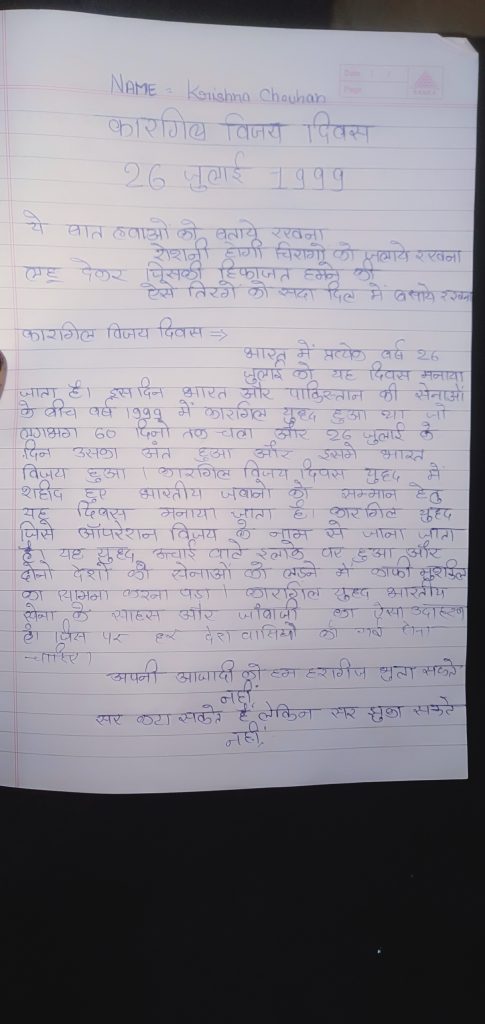 NAME = Krishna Chouhan
Date / /
Page
कारगिल विजय दिवस
26 जुलाई 1999
ये बात हवाओं को बताये रखना
रोशनी होगी चिरागो को जलाये रखना
लहू देकर जिसकी हिफाजत हमने की
ऐसे तिरंगे को सदा दिल में बसाये रखना
कारगिल विजय दिवस ⇒
भारत में प्रत्येक वर्ष 26
जुलाई को यह दिवस मनाया
जाता है। इस दिन भारत और पाकिस्तान की सेनाओं
के बीच वर्ष 1999 में कारगिल युद्द हुआ था जो
लगभग 60 दिनो तक चला और 26 जुलाई के
दिन उसका अंत हुआ और उसमे भारत
विजय हुआ। कारगिल विजय दिवस युद्द में
शहीद हुए भारतीय जवानो को सम्मान हेतु
यह दिवस मनाया जाता है। कारगिल युद्द
जिसे ऑपरेशन विजय के नाम से जाना जाता
है। यह युद्द ऊचाई वाले इलाके पर हुआ और
दोनो देशो की सेनाओं को लडने में काफी मुश्किल
का सामना करना पडा। कारगिल युद्द भारतीय
सेना के साहस और जाँबाजी का ऐसा उदाहरन
है जिस पर हर देश वासियो को गर्व होना
चाहिए।
अपनी आजादी को हम हरगीज भुला सकते
नही,
सर कटा सकते है लेकिन सर झुका सकते
नही!